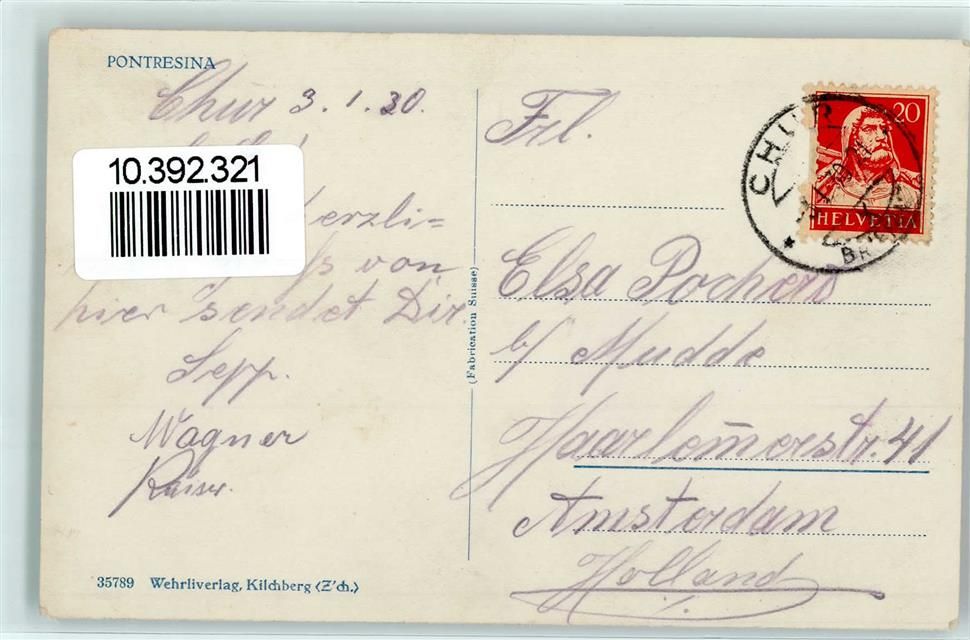 PONTRESINA
Chur 3.1.30.
10.392.321
erzli=
von
hier sendet Dir
Sepp.
Wagner
Kaiser.
35789 Wehrliverlag, Kilchberg (Z'ch.)
(Fabrication Suisse)
20
HELVETIA
CHUR
BR
Frl.
Elsa Pochero
b/ Mudde
Haarlem̄erstr. 41
Amsterdam
Holland